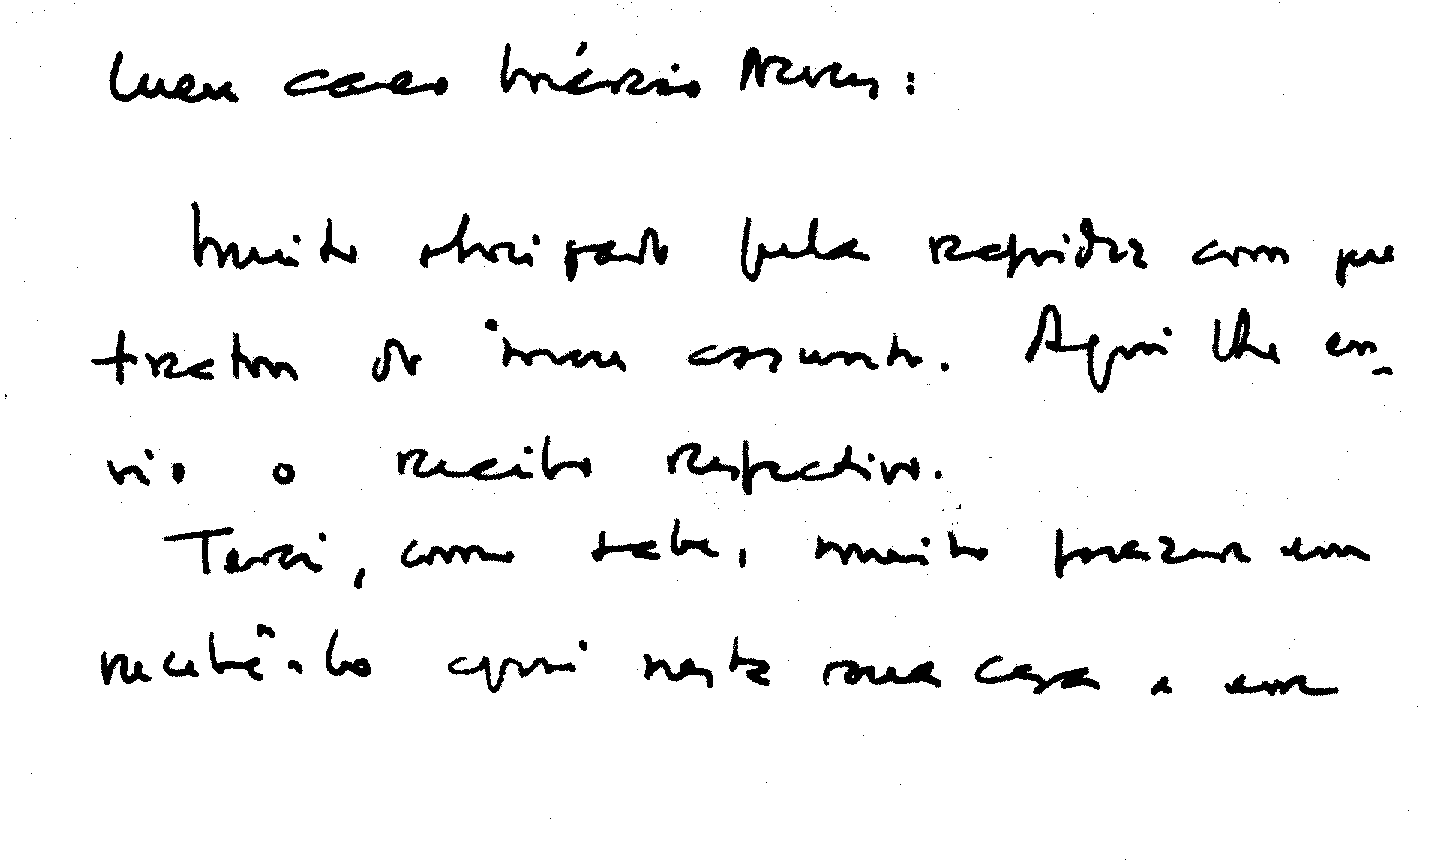 Meu caro Mário Neves:
Muito obrigado pela rapidez com que
tratou do meu assunto. Aqui lhe en-
vio o recibo respectivo.
Terei, como sabe, muito prazer em
recebê-lo aqui nesta sua casa e em